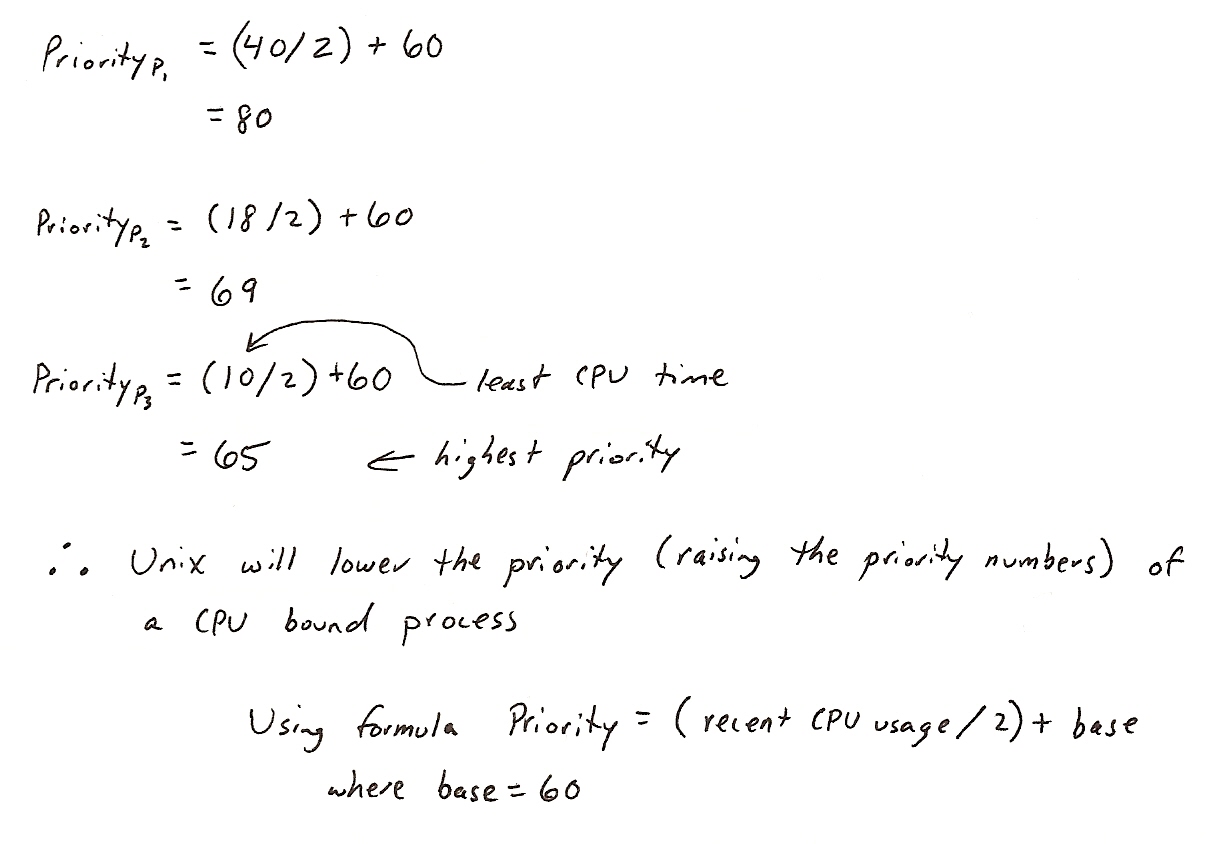 Priority P₁ = (40/2) + 60
= 80
Priority P₂ = (18/2) + 60
= 69
Priority P₃ = (10/2) + 60 least CPU time
= 65 ← highest priority
∴ Unix will lower the priority (raising the priority numbers) of
a CPU bound process
Using formula Priority = (recent CPU usage / 2) + base
where base = 60